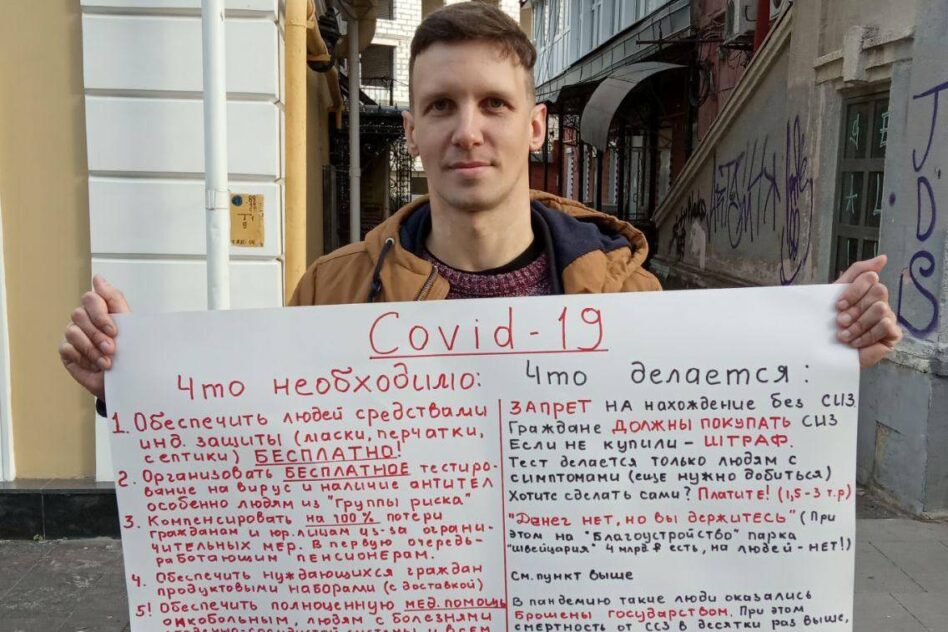 Covid-19
Что необходимо:
1. Обеспечить людей средствами
инд. защиты (маски, перчатки,
септики) БЕСПЛАТНО!
2. Организовать БЕСПЛАТНОЕ тестиро-
вание на вирус и наличие антител
особенно людям из "Группы риска"
3. Компенсировать на 100% потери
граждан и юр.лицам из за ограни-
чительных мер. В первую очередь-
работающим пенсионерам.
4. Обеспечить нуждающихся граждан
продуктовыми наборами (с доставкой)
5! Обеспечить полноценную мед. помощь
онкобольным, людям с болезнями
Что делается:
ЗАПРЕТ на нахождение без СИЗ
Граждане ДОЛЖНЫ ПОКУПАТЬ СИЗ
Если не купили - ШТРАФ.
Тест делается только людям с
симптомами (еще нужно добиться)
Хотите сделать сами? Платите! (1,5-3 т.р)
"Денег нет, но вы держитесь" (При
этом на "Благоустройство" парка
"швейцария" 4 млрд ₽ есть, на людей - НЕТ!)
См. пункт выше
В пандемию такие люди оказались
брошены государством. При этом
смертность от ССЗ в десятки раз выше,
JDS